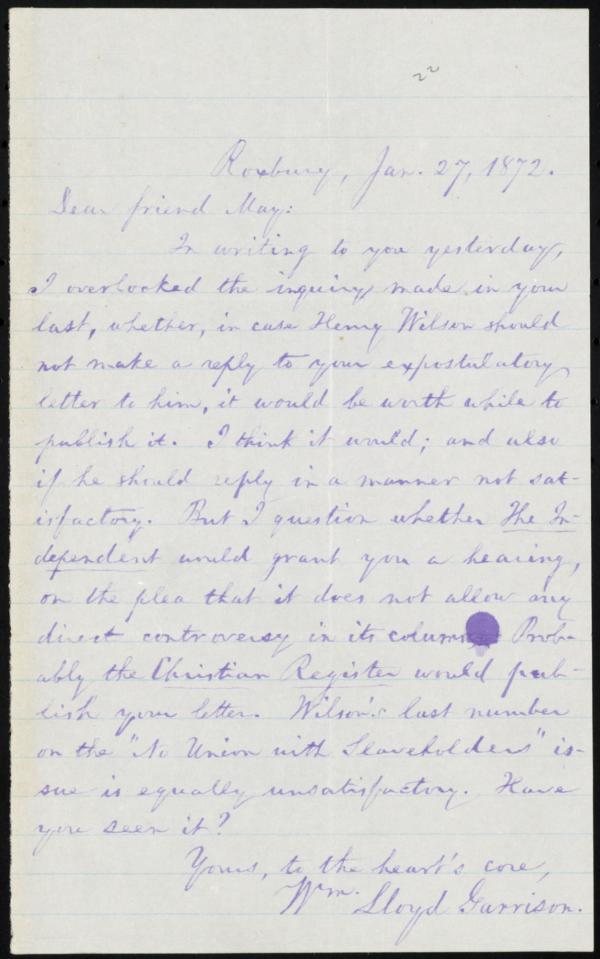 22
Roxbury, Jan. 27, 1872.
Dear friend May:
In writing to you yesterday,
I overlooked the inquiry made in your
last, whether, in case Henry Wilson should
not make a reply to your expostulatory
letter to him, it would be worth while to
publish it. I think it would; and also
if he should reply in a manner not sat-
isfactory. But I question whether The In-
dependent would grant you a hearing,
on the plea that it does not allow any
direct controversy in its columns. Prob-
ably the Christian Register would pub-
lish your letter. Wilson's last number
on the "No Union with Slaveholders" is-
sue is equally unsatisfactory. Have
you seen it?
Yours, to the heart's core,
Wm. Lloyd Garrison.